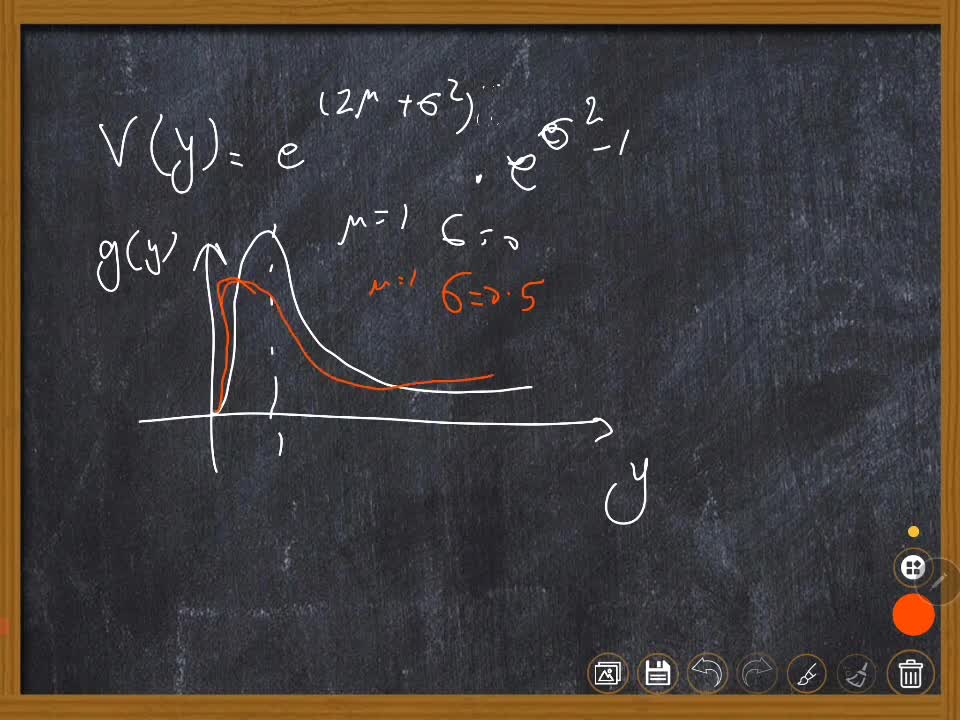 V(y) = e^(2μ + σ²) · e^σ² - 1
g(y)
μ = 1 σ = 0
μ = 1 σ = 0.5
1
y